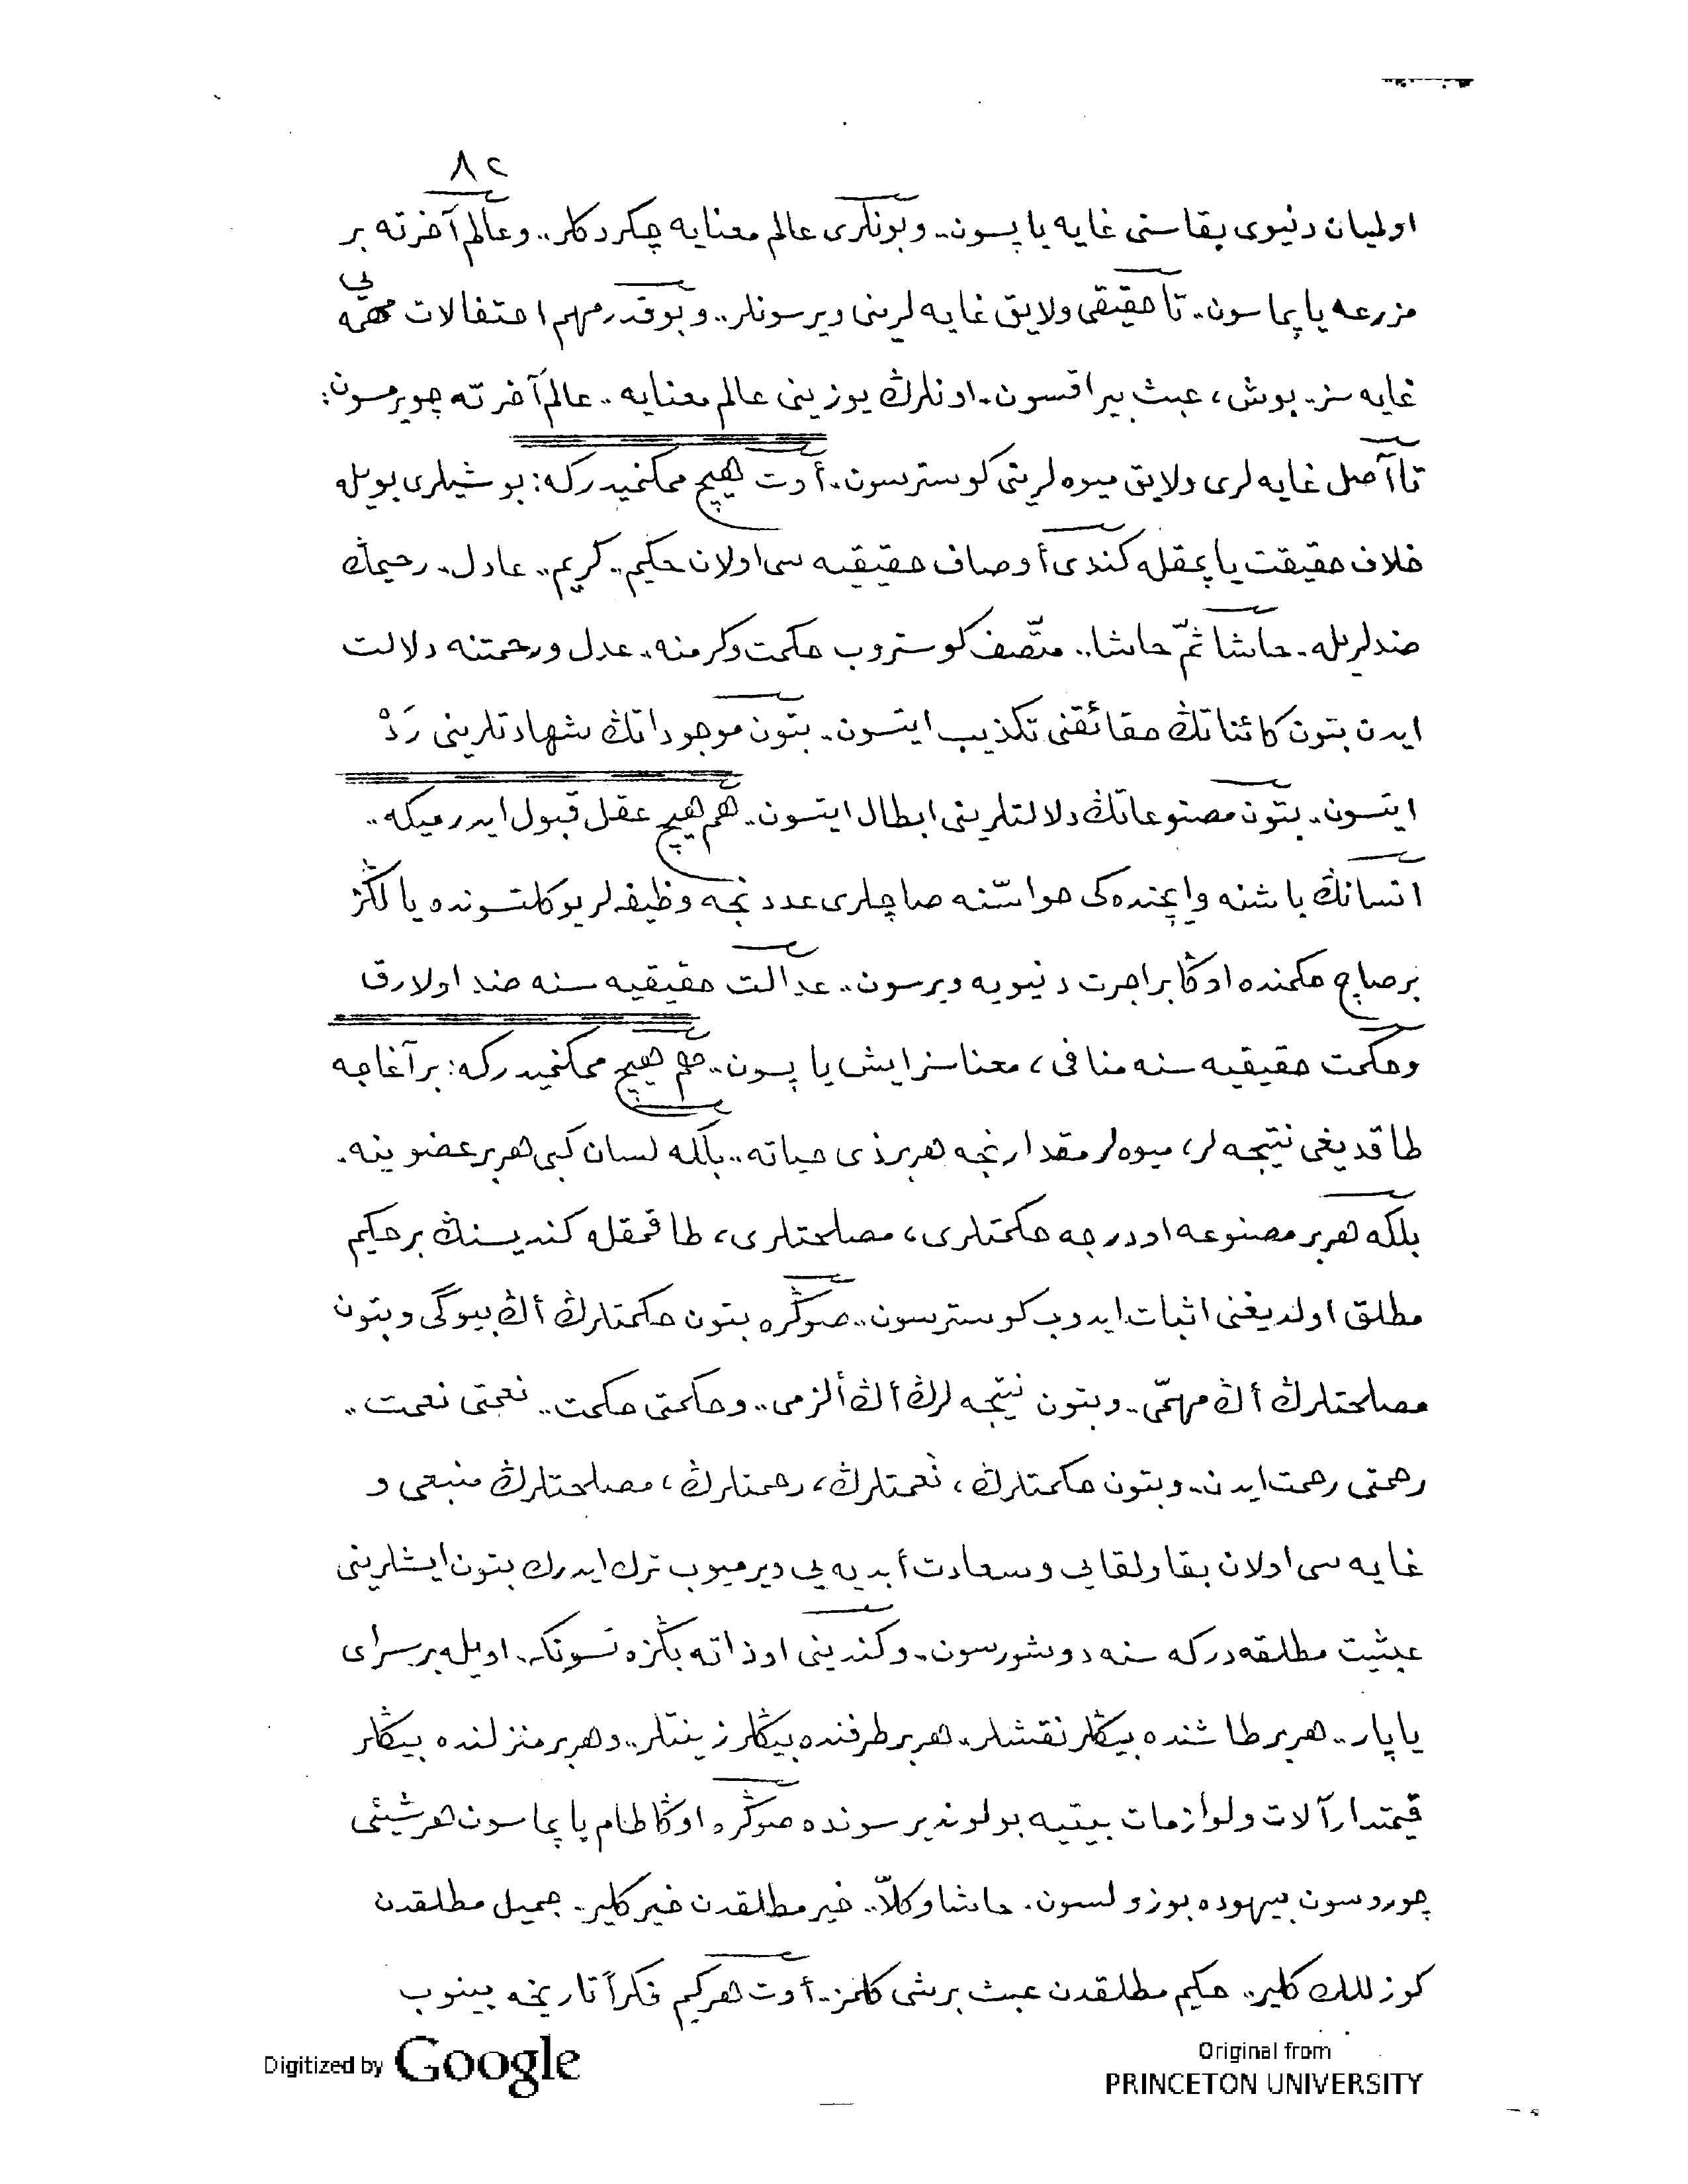 ٨٢
اولميان دنيوى بقاسنى غايه ياپسون.. وبونكرى عالم معنايه چكردكلر.. وعالم آخرته بر
مزرعه ياپماسون.. تا حقيقى ولايق غايه لرينى ويرسونلر.. و بوقدر مهم احتفالات مهمه يى
غايه سز.. بوش، عبث بيراقسون.. اونلرڭ يوزينى عالم معنايه.. عالم آخرته چويرمسون:
تا آصل غايه لرى ولايق ميوه لرينى كوسترسون.. أوت هيچ ممكنميدركه: بو شيلرى بويله
خلاف حقيقت ياپمقله كندى أوصاف حقيقيه سى اولان حكيم.. كريم.. عادل.. رحيمڭ
ضدلريله.. حاشا ثمّ حاشا.. متّصف كوستروب حكمت وكرمنه.. عدل ورحمتنه دلالت
ايدن بتون كائناتڭ حقائقنى تكذيب ايتسون.. بتون موجوداتڭ شهادتلرينى رَدْ
ايتسون.. بتون مصنوعاتڭ دلالتلرينى ابطال ايتسون.. هم هيچ عقل قبول ايدرميكه..
انسانڭ باشنه وايچنده كى حواسّنه صاچلرى عددنجه وظيفه لر يوكلتسونده يالڭز
برصاچ حكمنده اوڭا بر اجرت دنيويه ويرسون.. عدالت حقيقيه سنه ضد اولارق
وحكمت حقيقيه سنه منافى، معناسز ايش ياپسون.. هم هيچ ممكنميدركه: بر آغاجه
طاقديغى نتيجه لر، ميوه لر مقدارنجه هربرذى حياته.. بلكه لسان كبى هربر عضوينه.
بلكه هربر مصنوعه اودرجه حكمتلرى، مصلحتلرى، طاقمقله كنديسنڭ بر حكيم
مطلق اولديغنى اثبات ايدوب كوسترسون.. صوڭره بتون حكمتلرڭ أڭ بيوگى وبتون
مصلحتلرڭ أڭ مهمّى.. وبتون نتيجه لرڭ أڭ ألزمى.. وحكمتى حكمت.. نعمتى نعمت..
رحمتى رحمت ايدن.. وبتون حكمتلرڭ، نعمتلرڭ، رحمتلرڭ، مصلحتلرڭ منبعى و
غايه سى اولان بقا ولقايى وسعادت أبديه يى ويرميوب ترك ايدرك بتون ايشلرينى
عبثيت مطلقه دركه سنه دوشورسون.. وكندينى اوذاته بڭزه تسونكه.. اويله بر سراى
ياپار.. هربر طاشنده بيڭلر نقشلر.. هربر طرفنده بيڭلر زينتلر.. وهربر منزلنده بيڭلر
قيمتدار آلات ولوازمات بيتيه بولونديرسونده صوڭره اوڭا طام ياپماسون هرشيئى
چوروسون بيهوده بوزولسون. حاشا وكلاّ.. خير مطلقدن خير كلير.. جميل مطلقدن
كوزللك كلير.. حكيم مطلقدن عبث برشى كلمز.. أوت هركيم فكراً تاريخه بينوب
Digitized by Google
Original from
PRINCETON UNIVERSITY